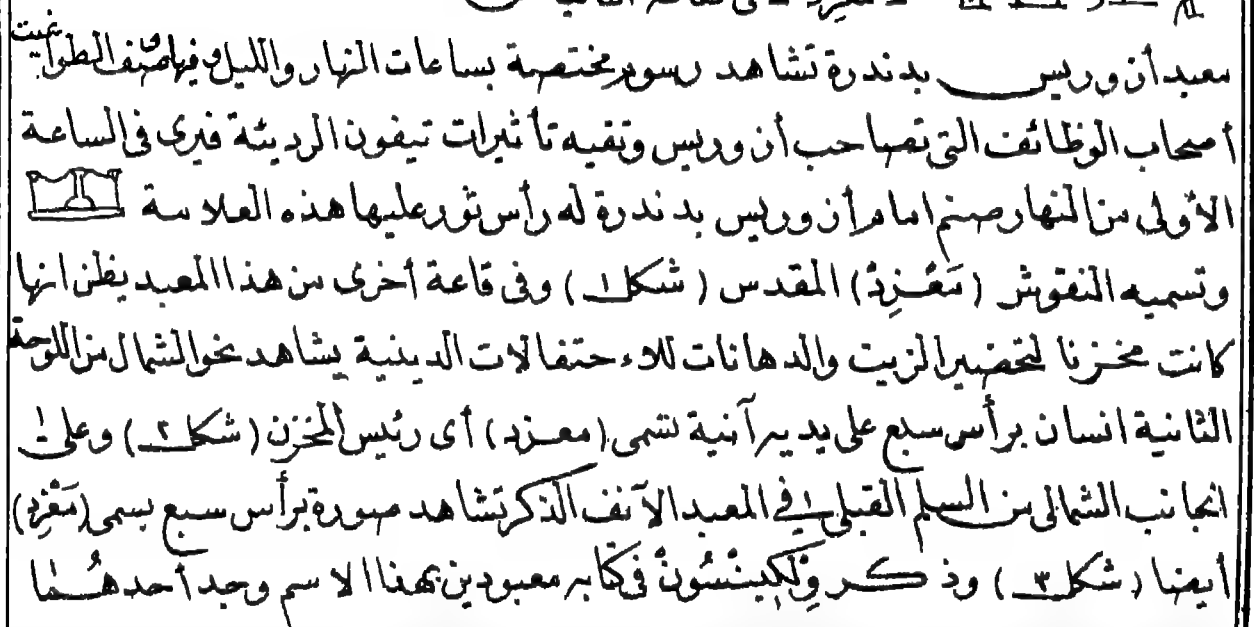 معبد أن وريس بدندرة تشاهد رسوم مختصة بساعات النهار والليل وفيها صنف الطوا
أصحاب الوظائف التي تصاحب أن وريس وتقيه تأثيرات تيفون الرديئة فيرى في الساعة
الأولى من النهار صنم امام أن وريس بدندرة له رأس ثور عليها هذه العلامة
وتسميه النقوش (مَعْزِدْ) المقدس (شكل ١) وفي قاعة أخرى من هذا المعبد يظن انها
كانت مخزنا لتحضير الزيت والدهانات للاحتفالات الدينية يشاهد نحو الشمال من اللوحة
الثانية انسان برأس سبع على يديه آنية تسمى (معزد) أى رئيس المخزن (شكل ٢) وعلى
الجانب الشمالى من السلم القبلى في المعبد الآنف الذكر تشاهد صورة برأس سبع يسمى (مَعْزِد)
أيضا (شكل ٣) وذكر وِلْكِينْسُونْ في كتابه معبودين بهذا الاسم وجد أحدهُما